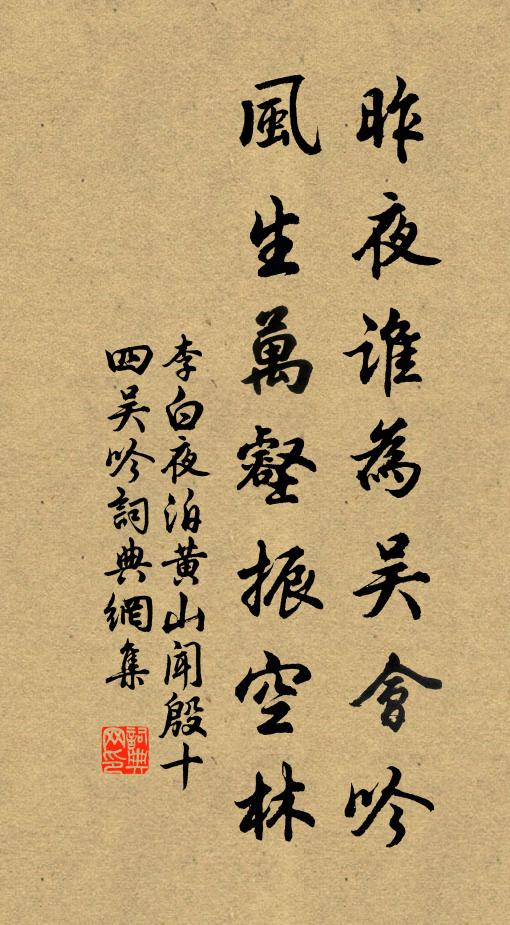 昨夜誰為吳會吟
風生萬壑振空林
李白夜泊黄山聞殷十
四吳吟詞典網集
詞典
网印